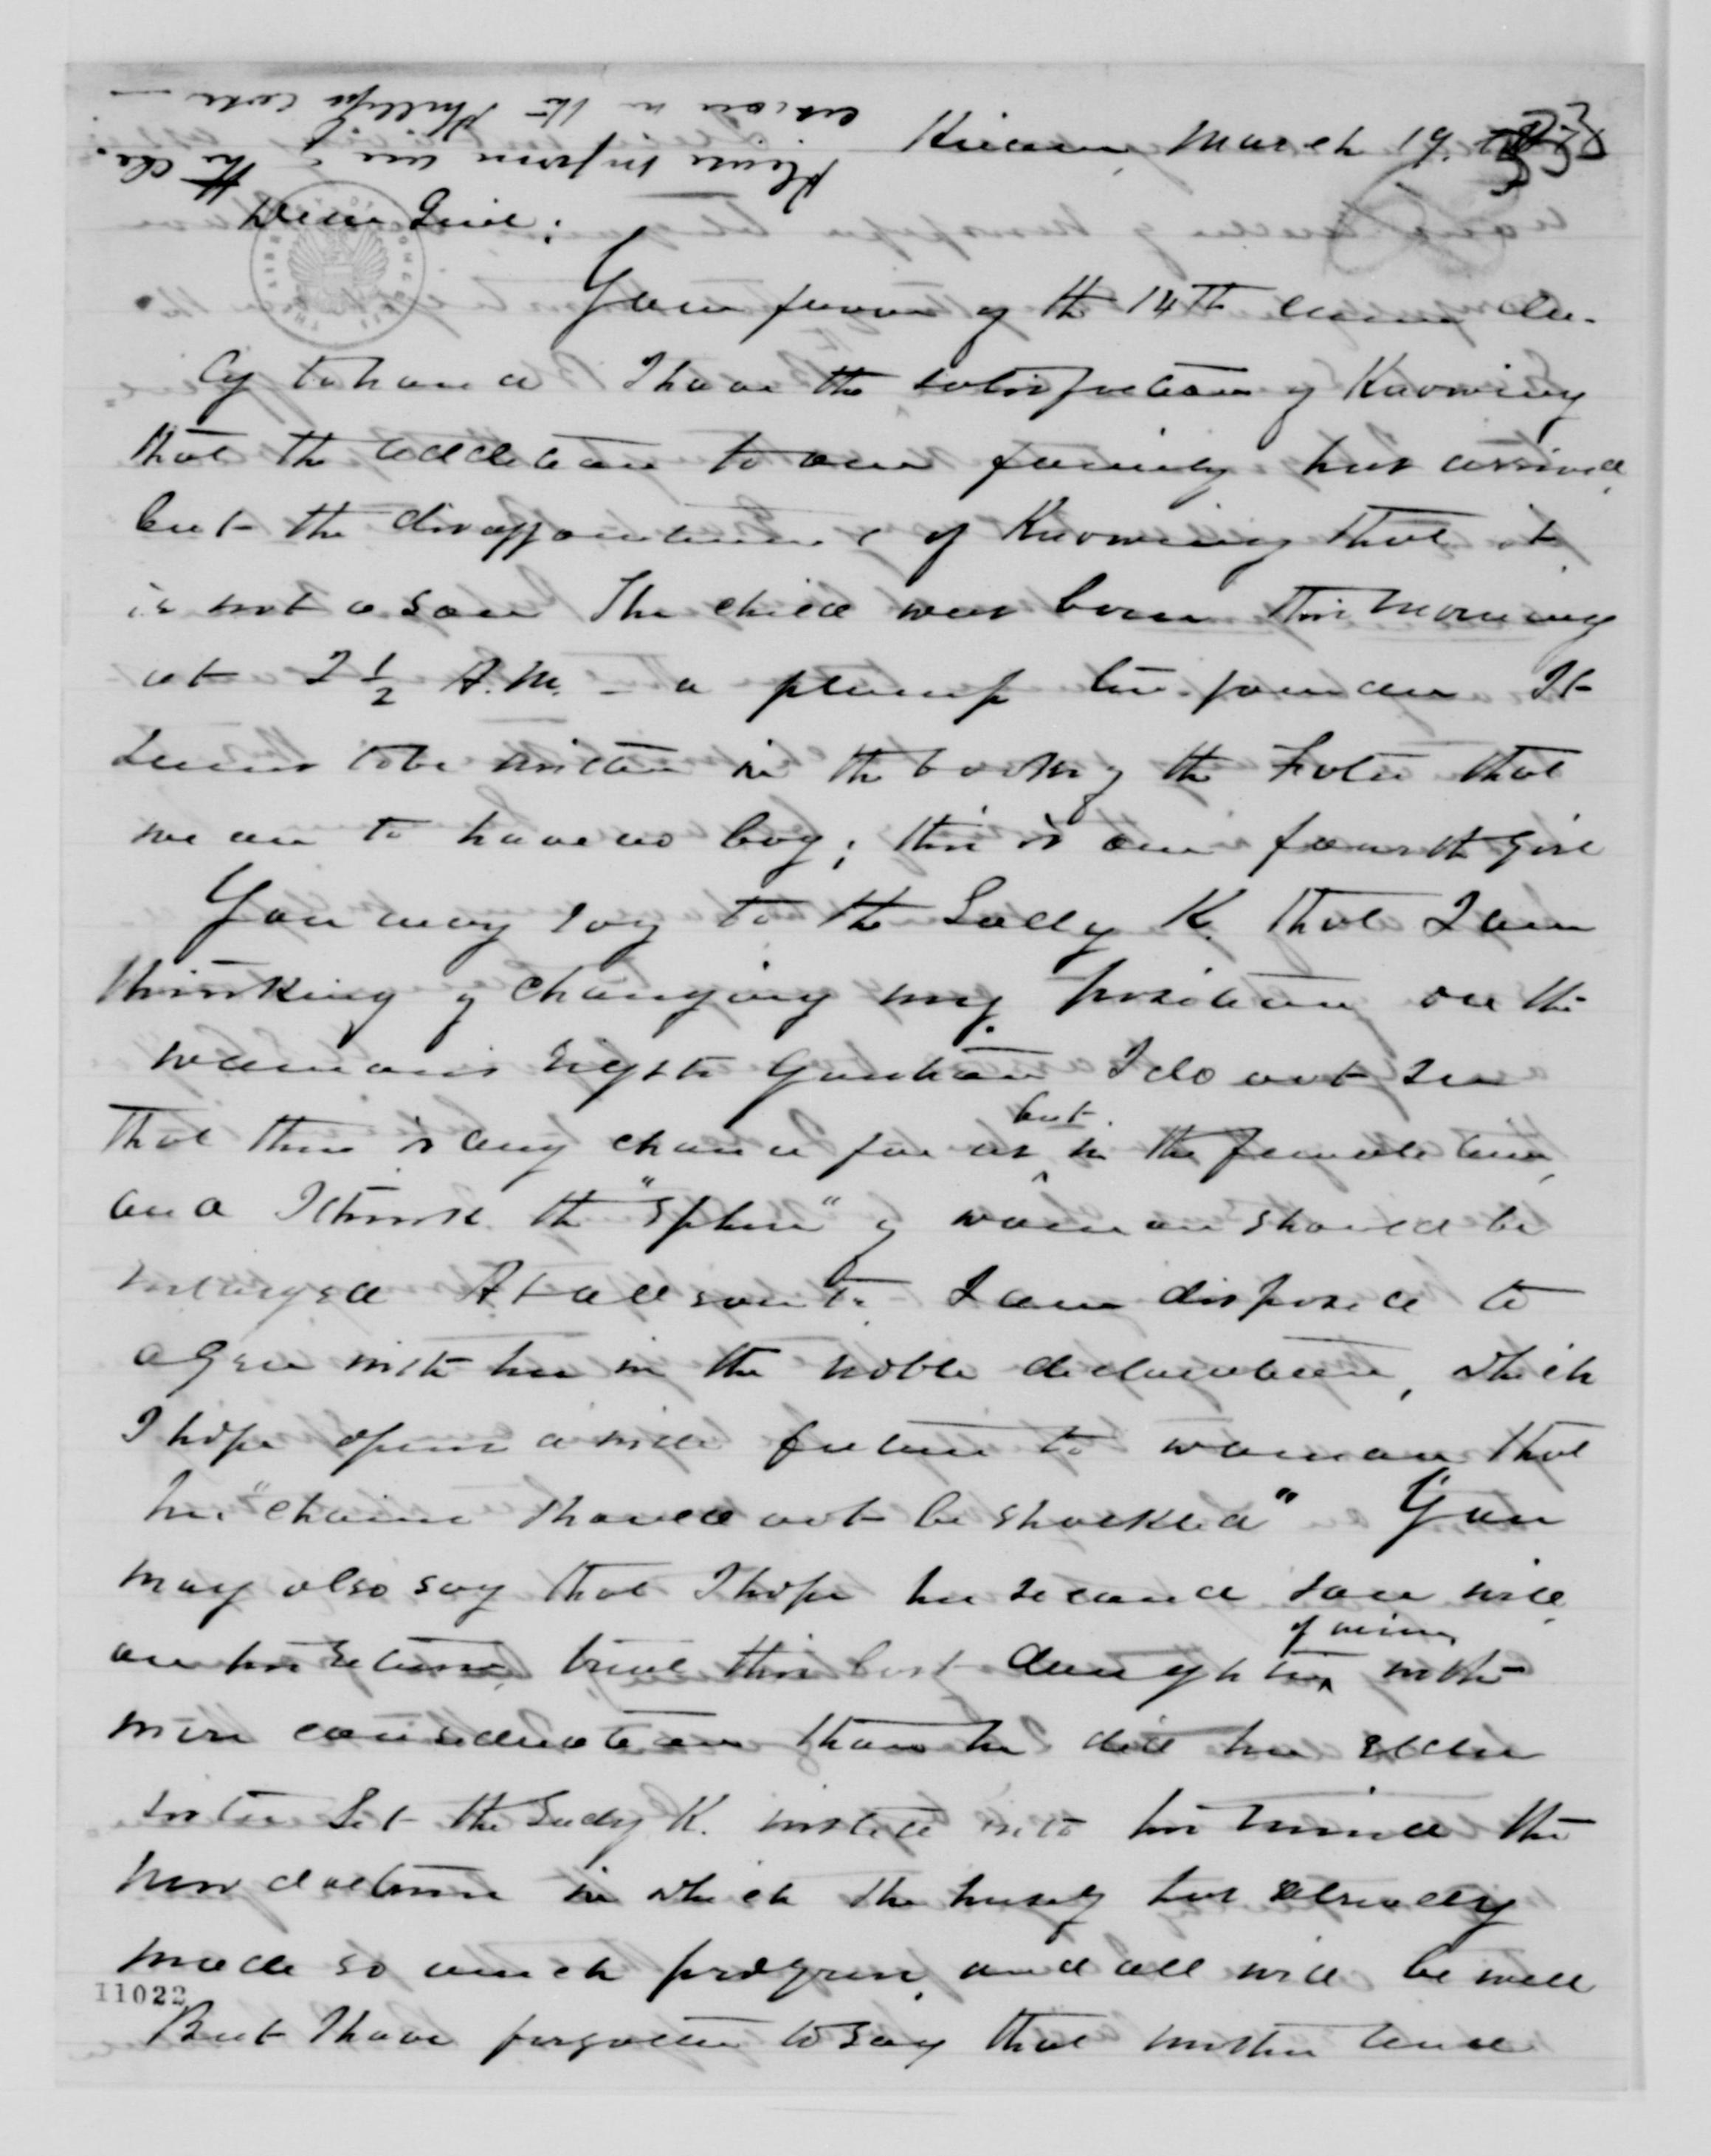 Please inform me of the de-
cision in the Phillips case —
Hiram, March 19,
Dear Friend:
Your favor of the 14th came du-
ly to hand I have the satisfaction of Knowing
that the addition to our family has arrived,
but the disappointment of Knowing that it
is not a son The child was born this morning
at 2 1/2 A.M. — a plump ten-pounder It
seems to be written in the book of the Fates that
we are to have no boy; this is our fourth girl
You may say to the Lady K. that I am
thinking of changing my position on the
woman's rights question I do not see
that there is any chance for us but in the female line,
and I think the "sphere" of woman should be
enlarged At all events I am disposed to
agree with her in the noble declaration, which
I hope opens a wide future to woman that
her "chains should not be shackled" You
may also say that I hope her second son will,
on his return, treat this last daughter of mine, with
more consideration than he did her elder
sister Let the Lady K. instill into his mind the
new doctrine in which she herself has already
made so much progress, and all will be well
11022
But I have forgotten to say that mother and